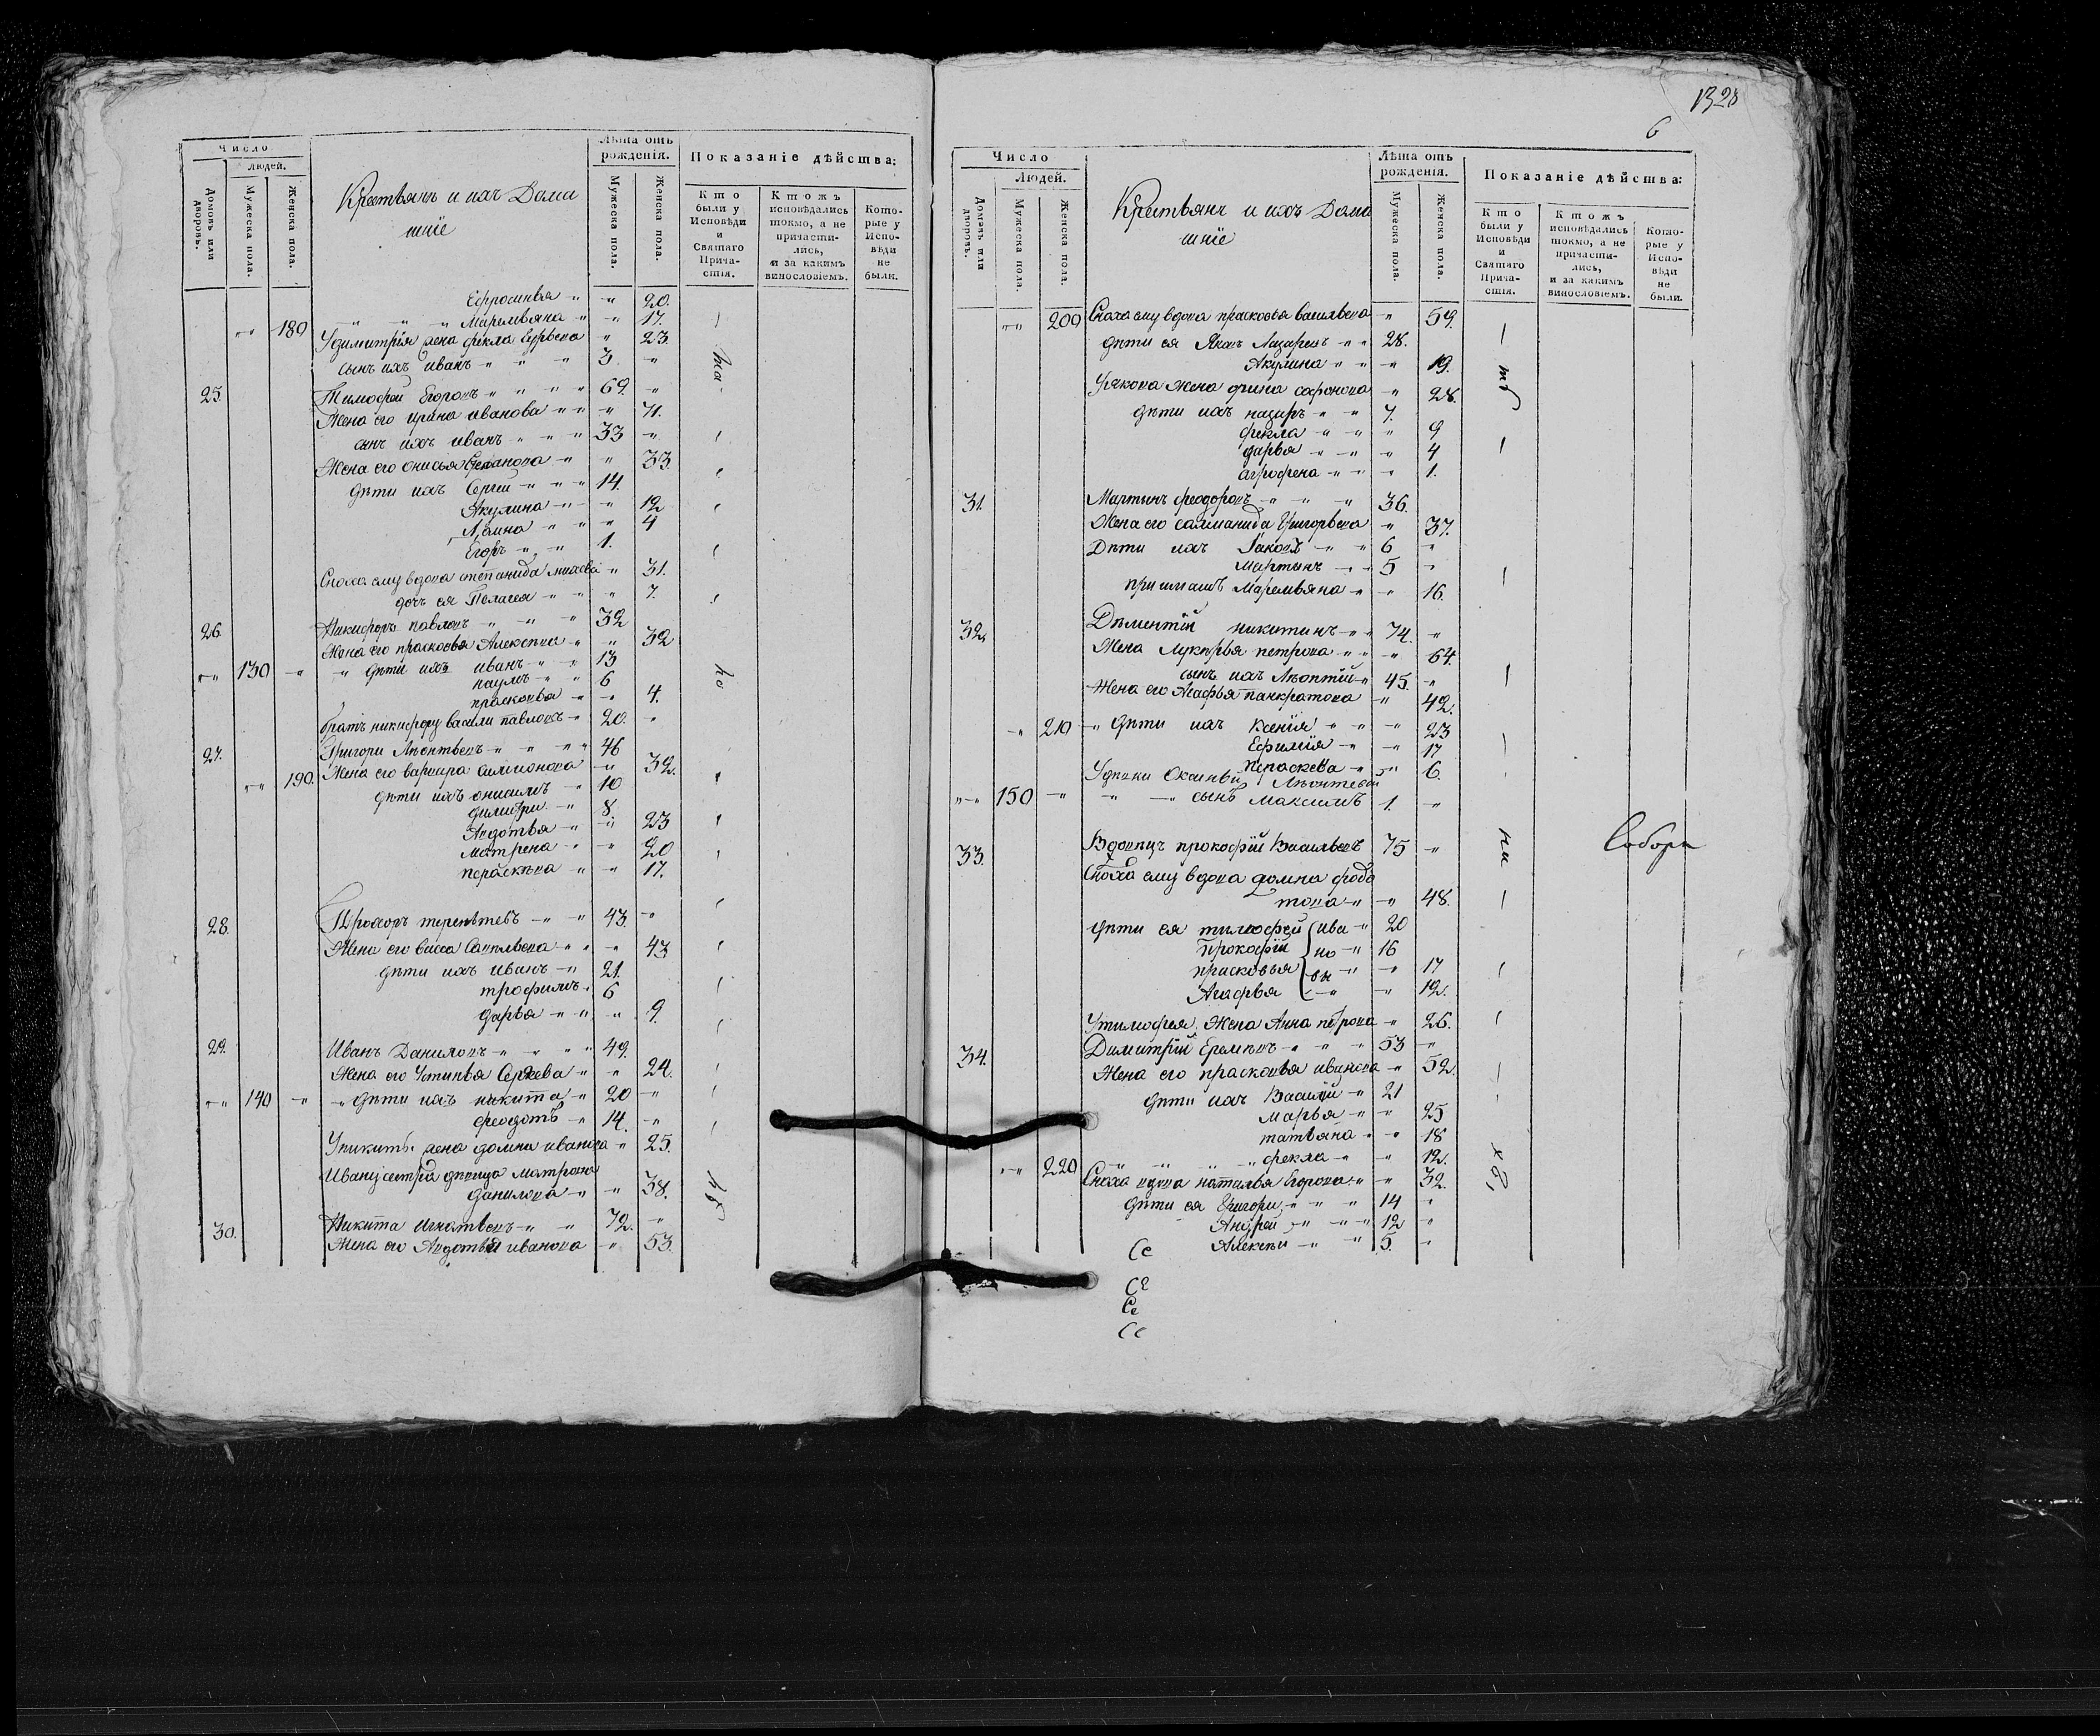 Число
людей.
Домовъ или дворовъ.
Мужеска пола.
Женска пола.
Крестьянъ и ихъ Дома
шнїе
Лѣта отъ рожденія.
Мужеска пола.
Женска пола.
Показаніе дѣйства:
Кто были у Исповѣди и Святаго Причастія.
Ктожъ исповѣдались токмо, а не причастились, и за какимъ винословіемъ.
Которые у Исповѣди не были.
Ефросинья " " 20.
" 180 " " " Маремьяна " " 17.
Удимитрїя жена фекла 23
сынъ ихъ иванъ " " " 3 "
25. Тимофей Егоровъ " " " 69. "
Жена его ирина иванова " " " 71.
сынъ ихъ иванъ " " " 33 "
Жена его онисья Степанова " " 33.
дѣти ихъ Сергей " " " 14.
Акулина " " " 12
" " " 4
Егоръ " " 1.
Сноха ему вдова степанида " 31.
дочь ея Пелагея " " " 7.
26. Никифоръ павловъ " " " 32
Жена его прасковья Алексѣева " " 32
" 130 " " дѣти ихъ иванъ " " 13
наумъ " " 6
прасковья " " 4.
братъ никифору васили павловъ " 20. "
27. Григори Леонтьевъ " " " " 46
" 190. Жена его варвара симионова " 32.
дѣти ихъ онисимъ " 10
димитри " 8.
Авдотья " " 23
Матрена " " 20
параскева " " 17.
28. Прохоръ терентьевъ " " 43. "
Жена его васса Савельева " " " 43
дѣти ихъ иванъ " 21.
трофимъ " 6
дарья " " " 9.
29. Иванъ Даниловъ " " " " 49.
Жена его Устинья Сергеева " " 24.
" 140 " " дѣти ихъ никита " 20 "
феодотъ " 14. "
Уникиты жена домна иванова " 25.
Ивану сестра девица Матрона
данилова " " 38.
30. Никита игнатьевъ " " 72. "
Жена его Авдотья иванова " 53.
1328
6
Число
Людей.
Домовъ или дворовъ.
Мужеска пола.
Женска пола.
Крестьянъ и ихъ Дома
шнїе
Лѣта отъ рожденія.
Мужеска пола.
Женска пола.
Показаніе дѣйства:
Кто были у Исповѣди и Святаго Причастія.
Ктожъ исповѣдались токмо, а не причастились, и за какимъ винословіемъ.
Которые у Исповѣди не были.
" 200 Сноха ему вдова прасковья васильева " 59.
дѣти ея Яковъ Лазаревъ " " 28.
Акулина " " " 19.
Уякова жена ирина сафонова " 28.
дѣти ихъ назаръ " " 7.
фекла " " " 9
дарья " " " 4
агрофена " " " 1.
31. Мартынъ феодоровъ " " " 36.
Жена его саломанида Григорьева " 37.
Дѣти ихъ Іаковъ " " 6 "
Мартынъ " " 5 "
Маремьяна " " 16.
32. Дементїй никитинъ " " 74. "
Жена Лукерья петрова " " " 64.
сынъ ихъ Леонтїй " 45. "
Жена его Агафья панкратова " 42.
" 210 " дѣти ихъ Ксенїя " " " 23
Ефимїя " " 17
параскева " " 6.
Удевки Оксиньи Леонтевой
" 150 " " " сынъ Максимъ 1. "
33. Вдовецъ прокофїй Васильевъ 75 "
Сноха ему вдова домна федо
това " " 48.
дѣти ея тимофей ива " 20
Прокофїй но " 16
прасковья вы " " 17
Агафья " " 12.
Утимофея Жена Анна петрова " 26.
34. Димитрїй Еремѣевъ " " " 53 "
Жена его прасковья иванова " 52.
дѣти ихъ Василїй " 21
Марья " " 25
татьяна " " 18
" 220 " " " " фекла " " 12.
Сноха вдова наталья Егорова " " 32.
дѣти ея Григори " " " 14 "
Андрей " " " 12 "
Алексѣй " " 5. "
Собора
Се
Се
Се
Се